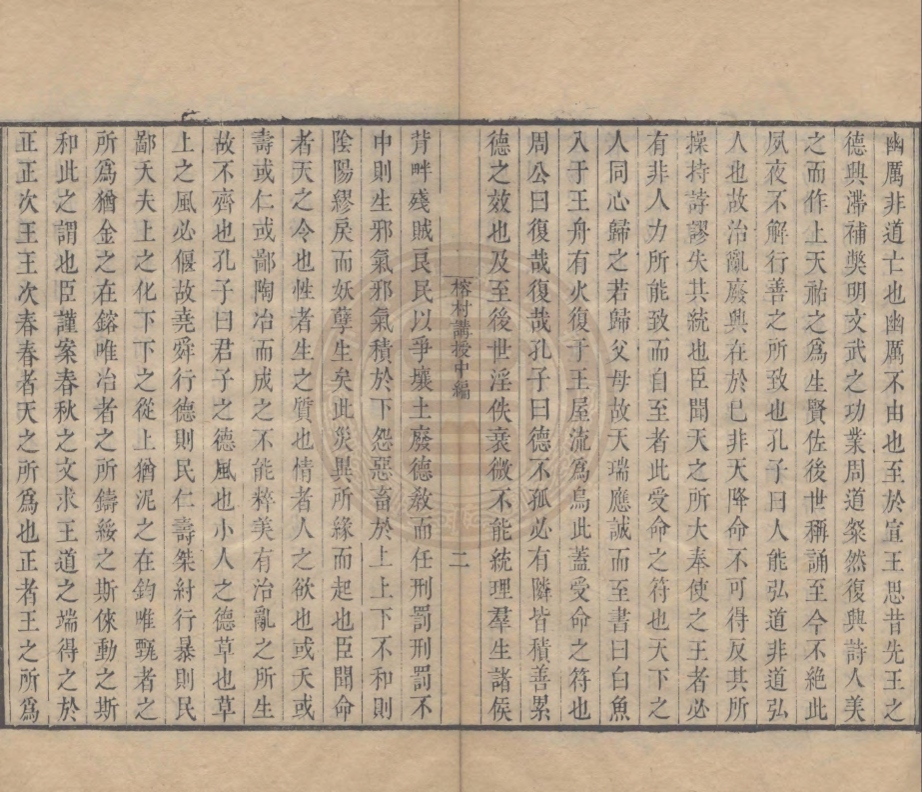 幽厲非道亡也幽厲不由也至於宣王思昔先王之
德興滯補獘明文武之功業周道粲然復興詩人美
之而作上天祐之爲生賢佐後世稱誦至今不絶此
夙夜不解行善之所致也孔子曰人能弘道非道弘
人也故治亂廢興在於巳非天降命不可得反其所
操持誖謬失其統也臣聞天之所大奉使之王者必
有非人力所能致而自至者此受命之符也天下之
人同心歸之若歸父母故天瑞應誠而至書曰白魚
入于王舟有火復于王屋流爲烏此葢受命之符也
周公曰復哉復哉孔子曰德不孤必有隣皆積善累
德之效也及至後世淫佚衰微不能統理羣生諸侯
榕村講授中編　二
背畔殘賊良民以爭壤土廢德敎而任刑罰刑罰不
中則生邪氣邪氣積於下怨惡畜於上上下不和則
陰陽繆戾而妖孽生矣此災異所緣而起也臣聞命
者天之令也性者生之質也情者人之欲也或夭或
壽或仁或鄙陶冶而成之不能粹美有治亂之所生
故不齊也孔子曰君子之德風也小人之德草也草
上之風必偃故堯舜行德則民仁壽桀紂行暴則民
鄙夭夫上之化下下之從上猶泥之在鈞唯甄者之
所爲猶金之在鎔唯冶者之所鑄綏之斯倈動之斯
和此之謂也臣謹案春秋之文求王道之端得之於
正正次王王次春春者天之所爲也正者王之所爲